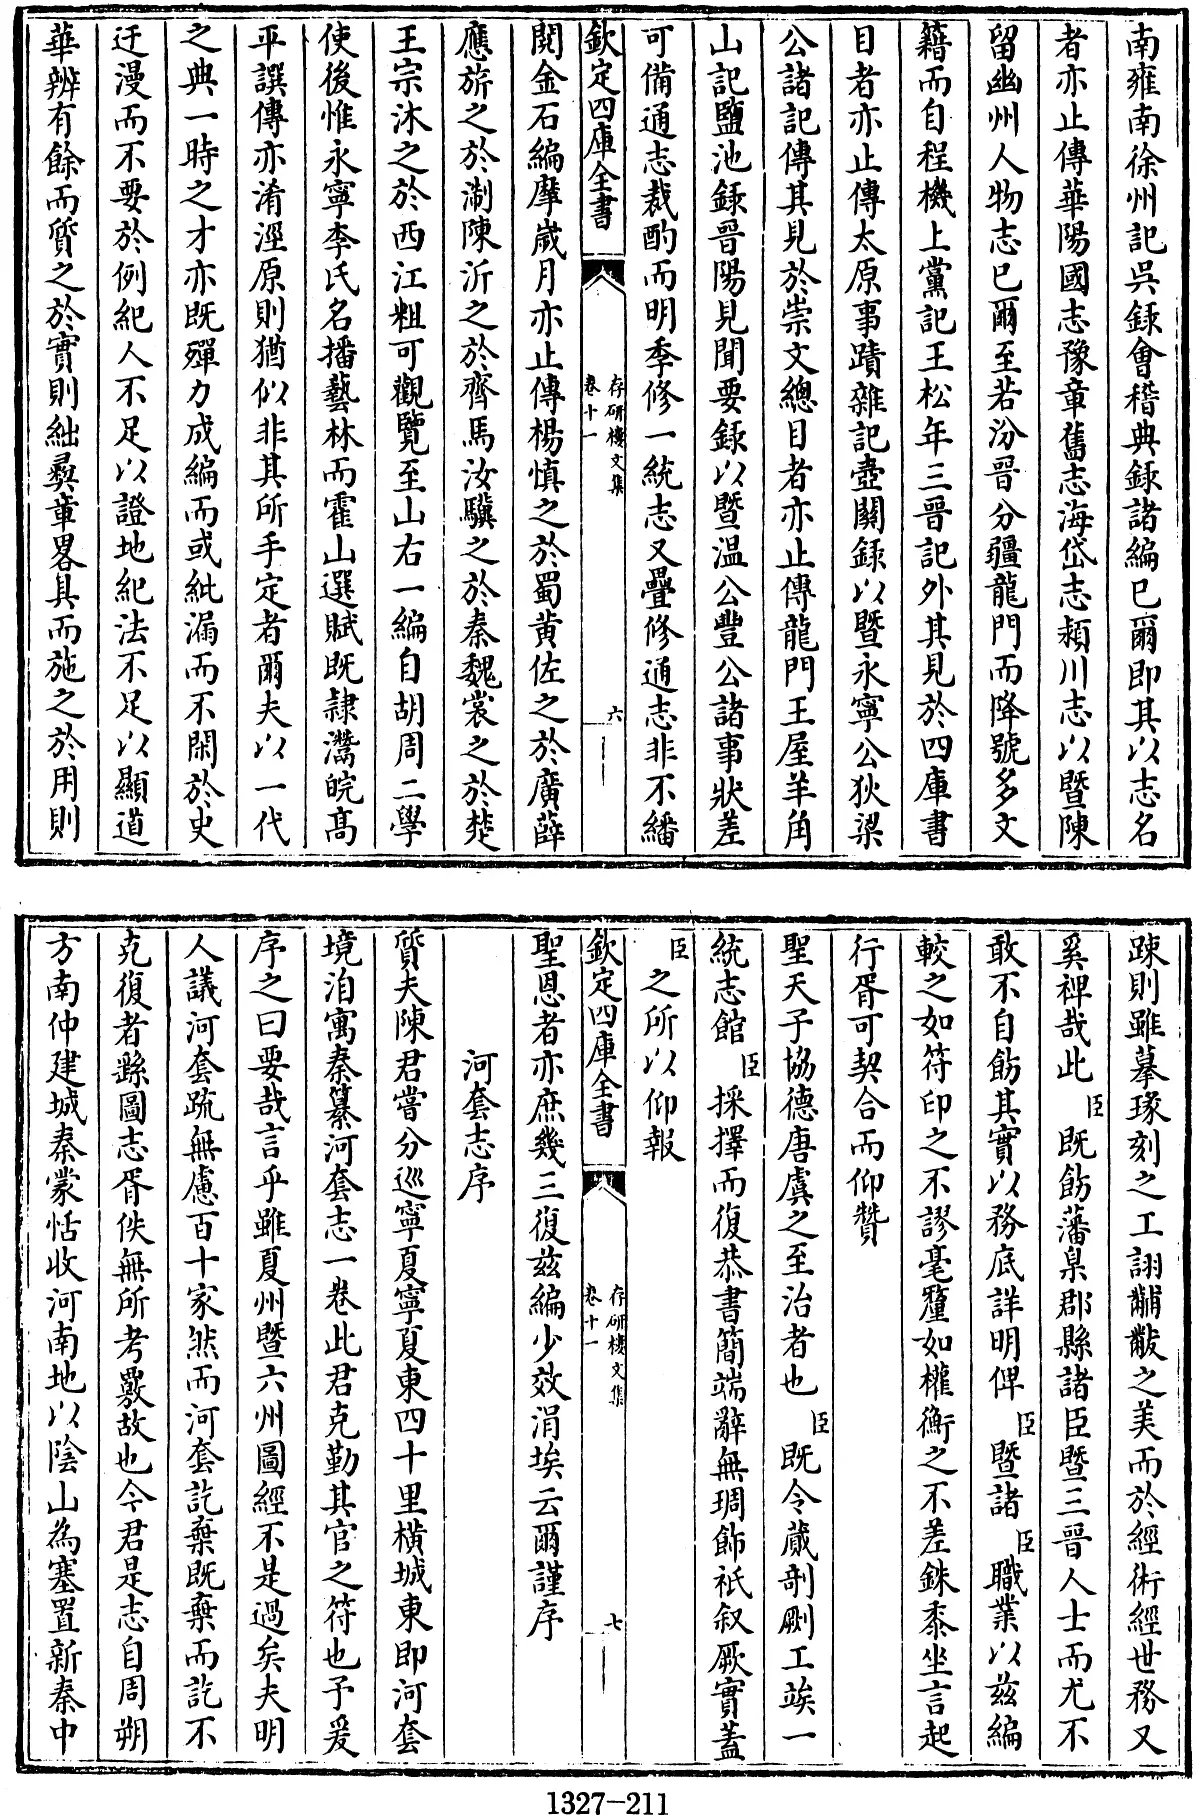 南雍南徐州記吳録會稽典録諸編已爾即其以志名
者亦止傳華陽國志豫章舊志海岱志潁川志以暨陳
留幽州人物志已爾至若汾晉分疆龍門而降號多文
籍而自程機上黨記王松年三晉記外其見於四庫書
目者亦止傳太原事蹟雜記壺關録以暨永寧公狄梁
公諸記傳其見於崇文總目者亦止傳龍門王屋羊角
山記鹽池録晉陽見聞要録以暨温公豐公諸事狀差
可備通志裁酌而明季修一統志又疊修通志非不繙
欽定四庫全書
存研樓文集
卷十一
六
閲金石編摩嵗月亦止傳楊慎之於蜀黄佐之於廣薛
應旂之於淛陳沂之於齊馬汝驥之於秦魏裳之於楚
王宗沐之於西江粗可觀覽至山右一編自胡周二學
使後惟永寧李氏名播藝林而霍山選賦既隷灊皖髙
平譔傳亦淆涇原則猶似非其所手定者爾夫以一代
之典一時之才亦既殫力成編而或紕漏而不閑於史
迂漫而不要於例紀人不足以證地紀法不足以顯道
華辨有餘而質之於實則絀彛章畧具而施之於用則
踈則雖摹瑑刻之工詡黼黻之美而於經術經世務又
奚裨哉此臣既飭藩臬郡縣諸臣暨三晉人士而尤不
敢不自飭其實以務底詳明俾臣暨諸臣職業以兹編
較之如符印之不謬毫釐如權衡之不差銖黍坐言起
行胥可契合而仰贊
聖天子協德唐虞之至治者也臣既令蕆剞劂工竢一
統志館臣採擇而復恭書簡端辭無琱飾祇叙厥實蓋
臣之所以仰報
欽定四庫全書
存研樓文集
卷十一
七
聖恩者亦庶幾三復兹編少效涓埃云爾謹序
河套志序
質夫陳君嘗分巡寧夏寧夏東四十里横城東即河套
境洎寓秦纂河套志一卷此君克勤其官之符也予爰
序之曰要哉言乎雖夏州暨六州圖經不是過矣夫明
人議河套疏無慮百十家然而河套訖棄既棄而訖不
克復者繇圖志胥佚無所考覈故也今君是志自周朔
方南仲建城秦蒙恬收河南地以陰山為塞置新秦中
1327-211